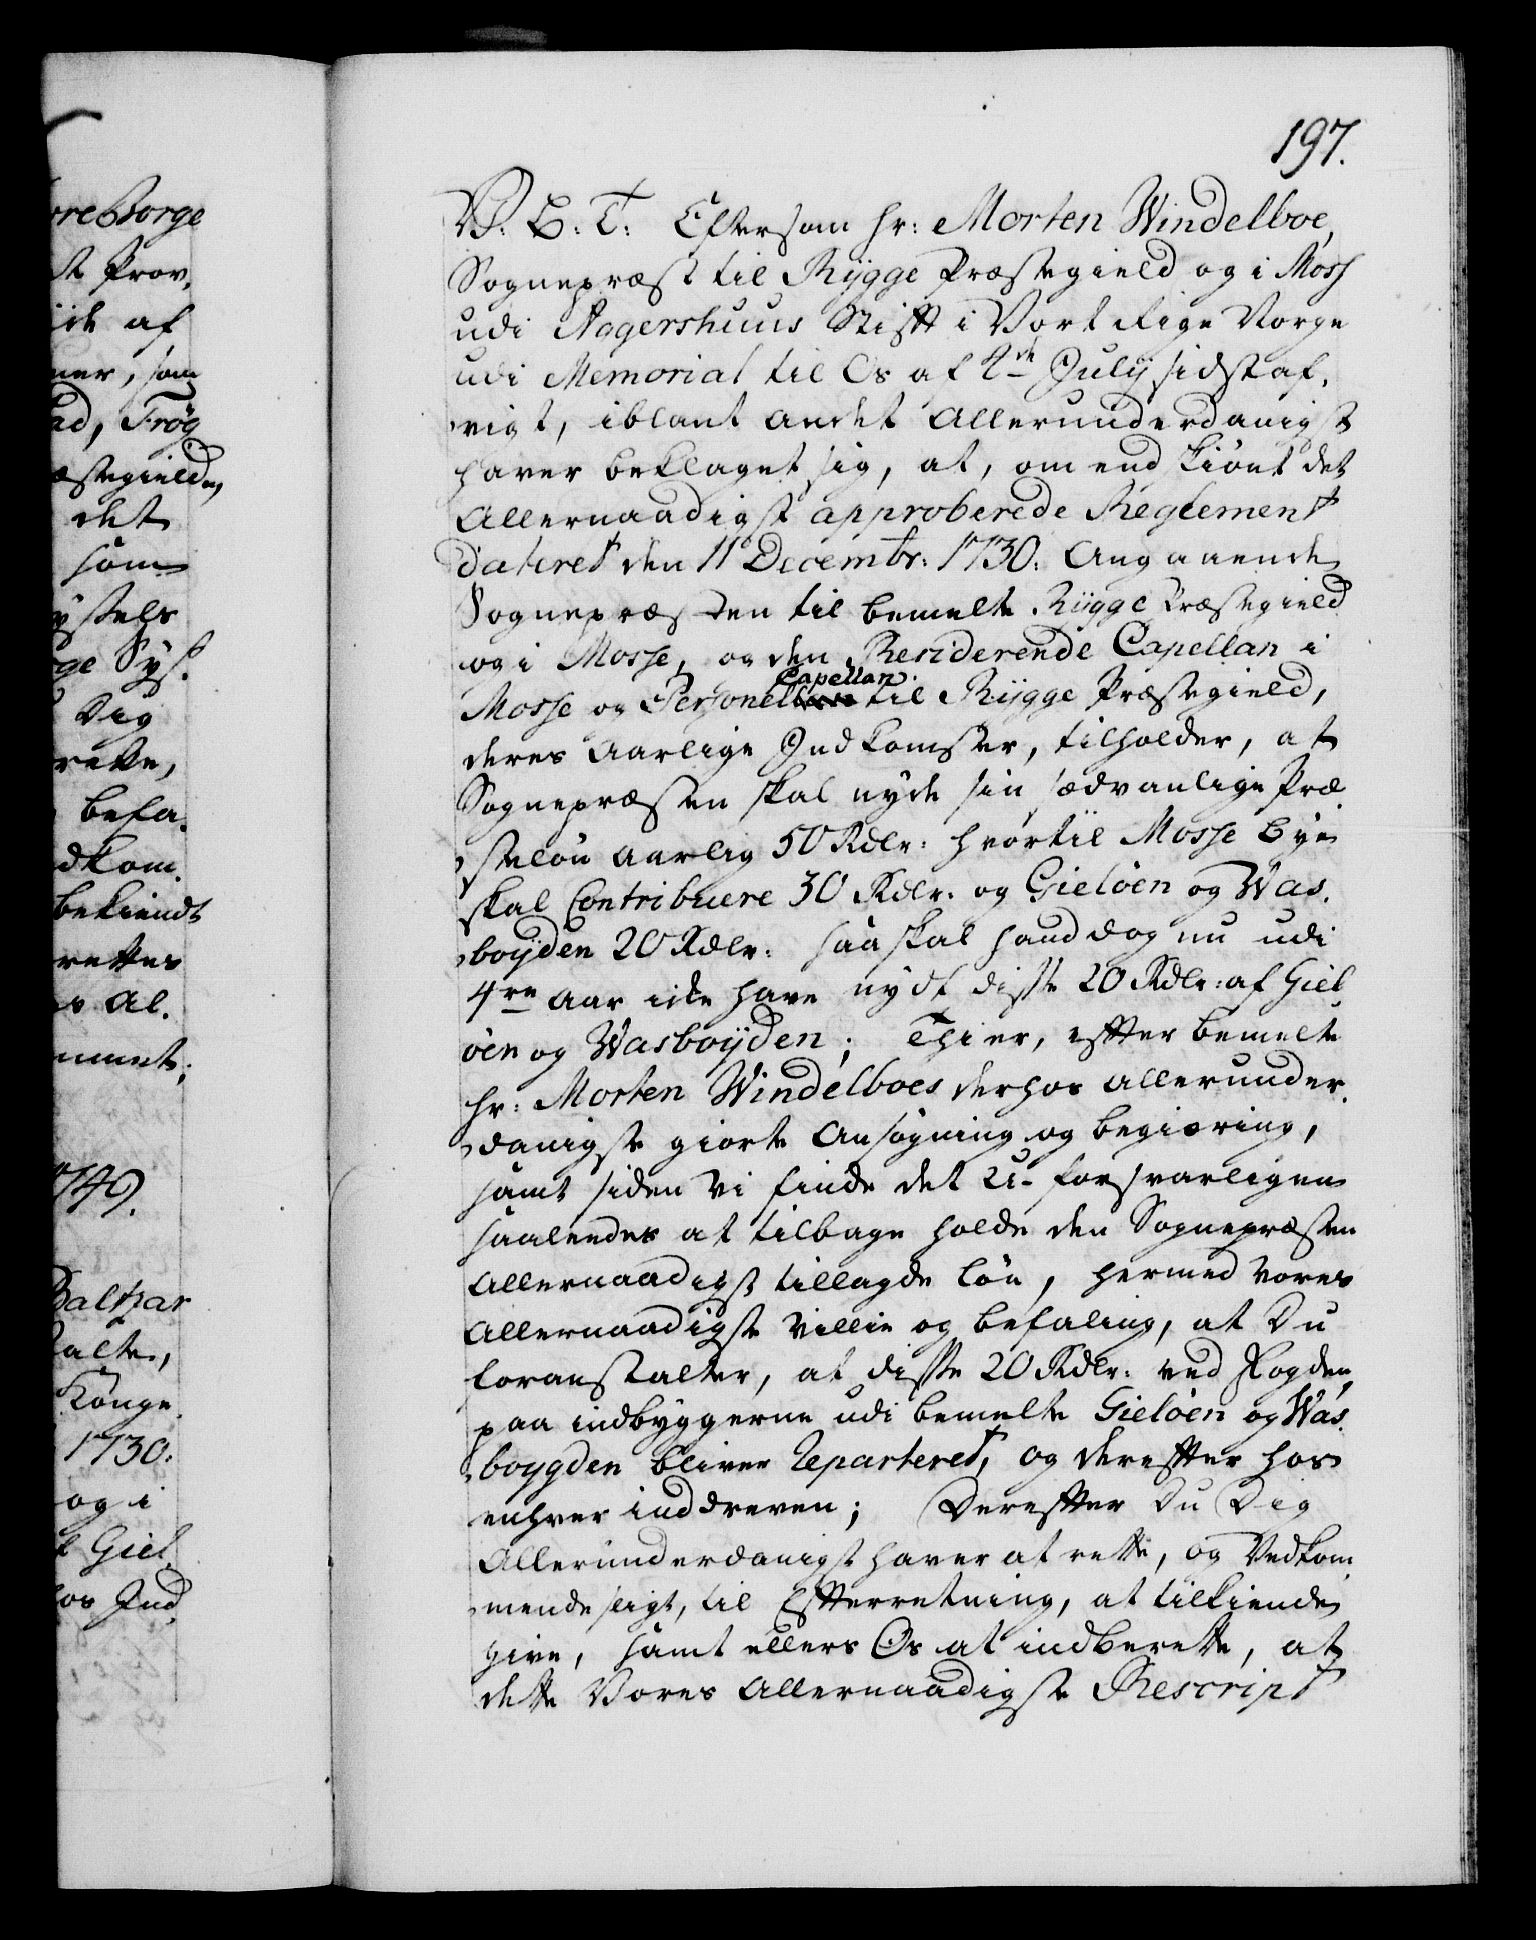 197.
V: G: T: Eftersom hr: Morten Windelboe,
Sognepræst til Rygge Præstegield og i Moss
udi Aggershuus Stift i Vort Rige Norge
udi Memorial til Os af 4de July sidstaf-
vigt, iblant andet Allerunderdanigst
haver beklaget sig, at, omendskiønt det
Allernaadigst approberede Reglement
dateret den 11 Decembr: 1730. Angaaende
Sognepræsten til bemelte Rygge Præstegield
og i Mosse, og den Residerende Capellan i
Mosse og Personel Capellan til Rygge Præstegield,
deres Aarlige Indkomster, tilholder, at
Sognepræsten skal nyde sin sædvanlige Præ-
steløn aarlig 50 Rdlr: hvortil Mosse Bye
skal Contribuere 30 Rdlr. og Gieløen og Was-
boyden 20 Rdlr: saa skal hand dog nu udi
4re Aar icke have nydt disse 20 Rdlr: af Giel-
øen og Wasboyden; Thi er, efter bemelte
hr: Morten Windelboes derhos allerunder-
danigste giorte Ansøgning og begiæring,
samt siden Vi finde det U-forsvarligen
saaleedes at tilbage holde den Sognepræsten
Allernaadigst tillagde løn, hermed Vores
Allernaadigste Villie og befaling, at Du
foranstalter, at disse 20 Rdlr: ved Fogden
paa indbyggerne udi bemelte Gieløen og Was-
boygden bliver Reparteret, og derefter hos
enhver inddreven; Derefter Du Dig
Allerunderdanigst haver at rette, og Vedkom-
mende sligt, til Efterretning, at tilkiende
give, samt ellers Os at indberette, at
dette Vores Allernaadigste Rescript